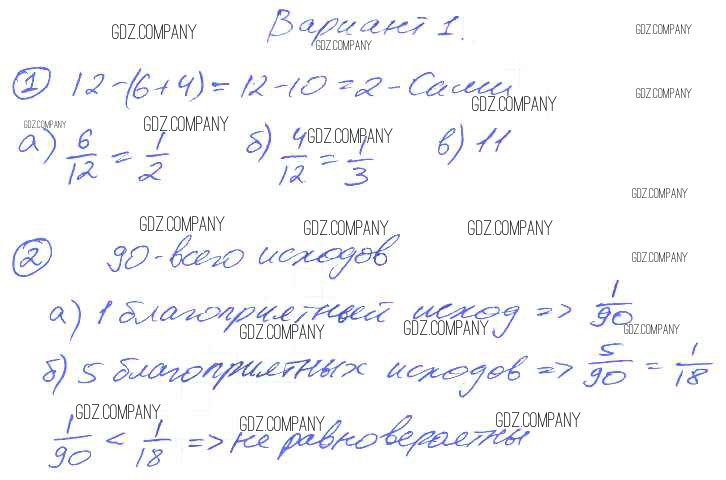 Вариант 1.
GDZ.COMPANY GDZ.COMPANY GDZ.COMPANY
① 12-(6+4) = 12-10 = 2 - Сами
GDZ.COMPANY GDZ.COMPANY
GDZ.COMPANY GDZ.COMPANY GDZ.COMPANY
а) 6/12 = 1/2 б) 4/12 = 1/3 в) 11
GDZ.COMPANY
GDZ.COMPANY GDZ.COMPANY GDZ.COMPANY
② 90 - всего исходов
GDZ.COMPANY
а) 1 благоприятный исход => 1/90
GDZ.COMPANY GDZ.COMPANY GDZ.COMPANY
б) 5 благоприятных исходов => 5/90 = 1/18
GDZ.COMPANY GDZ.COMPANY GDZ.COMPANY
1/90 < 1/18 => не равновероятны